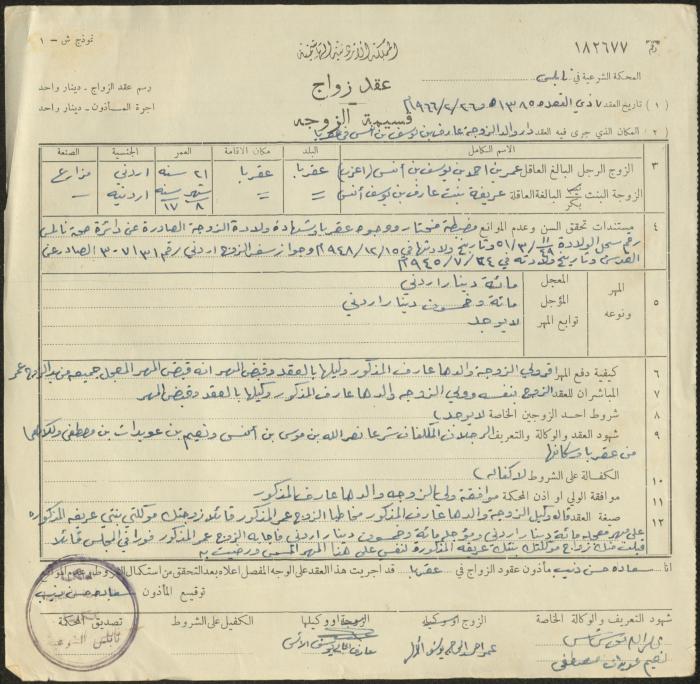 نموذج ش - ١
المملكة الاردنية الهاشمية
رقم ١٨٢٦٧٧
رسم عقد الزواج - دينار واحد
اجرة المأذون - دينار واحد
عقد زواج
المحكمة الشرعية في نابلس
قسيمة الزوجه
(١) تاريخ العقد ٧ ذي القعدة ١٣٨٥هـ و ٢٦/٢/١٩٦٦م
(٢) المكان الذي جرى فيه العقد دار والد الزوجة عارف بن يوسف بن أنس في عقربا
الاسم الكامل البلد مكان الاقامة العمر الجنسية الصنعة
٣ الزوج الرجل البالغ العاقل عمر بن احمد بن يوسف بن أنس (اعزب) عقربا عقربا ٢١ سنه اردني مزارع
الزوجة البنت بكر البالغة العاقلة عريفة بنت عارف بن يوسف أنس = = شهر سنه ٨ ١٧ اردنية -
٤ مستندات تحقق السن وعدم الموانع مضبطة مختار ووجوه عقربا وشهادة ولادة الزوجة الصادرة عن دائرة صحة نابلس
رقم سجل الولادة وتاريخ ولادتها في ١٥/١٢/١٩٤٨م وجواز سفر الزوج اردني رقم الصادر عن
القدس وتاريخ ولادته في ٢٤/٧/١٩٤٥م
٥ المهر ونوعه
المعجل مائة دينار اردني
المؤجل مائة وخمسون دينار اردني
توابع المهر لا يوجد
٦ كيفية دفع المهر اقر ولي الزوجة والدها عارف المذكور وكيلها بالعقد وقبض المهر انه قبض المهر المعجل جميعه من يد الزوج عمر
٧ المباشران للعقد الزوج بنفسه وولي الزوجه والدها عارف المذكور وكيلها بالعقد وقبض المهر
٨ شروط احد الزوجين الخاصة لا يوجد
٩ شهود العقد والوكالة والتعريف الرجلان المكلفان شرعا نصر الله بن موسى بن أنس ونعيم بن عويدات بن مصطفى وكلاهما
من عقربا وسكانها
١٠ الكفالة على الشروط لا كفاله
١١ موافقة الولي او اذن المحكمة موافقة ولي الزوجه والدها عارف المذكور
١٢ صيغة العقد قال وكيل الزوجة والدها عارف المذكور مخاطبا الزوج عمر المذكور قائلا زوجتك موكلتي بنتي عريفه المذكوره
على مهر معجله مائة دينار اردني ومؤجله مائة وخمسون دينار اردني فاجابه الزوج عمر المذكور فورا في المجلس قائلا
قبلت منك زواج موكلتك بنتك عريفه المذكورة لنفسي على هذا المهر المسمى ورضيت به
انا سعاده حسن ذيب مأذون عقود الزواج في عقربا قد اجريت هذا العقد على الوجه المفصل اعلاه بعد التحقق من استكمال الشروط
توقيع المأذون سعاده حسن ذيب
شهود التعريف والوكالة الخاصة
الزوج او وكيله
الزوجة او وكيلها
الكفيل على الشروط
تصديق المحكمة
نابلس الشرعية
نعيم عويدات مصطفى